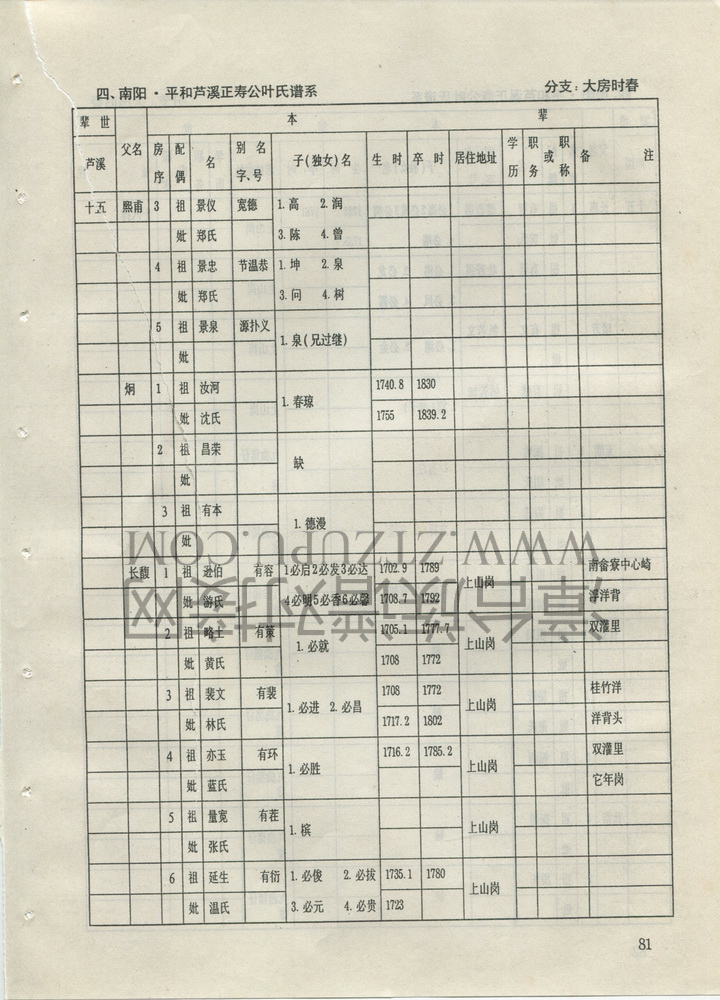 四、南阳·平和芦溪正寿公叶氏谱系 分支：大房时春
辈世 本 辈
芦溪 父名 房序 配偶 名 别名字、号 子(独女)名 生时 卒时 居住地址 学历 职务或职称 备注
十五 熙甫 3 祖 景仪 宽德 1.高 2.润
妣 郑氏 3.陈 4.曾
4 祖 景忠 节温恭 1.坤 2.泉
妣 郑氏 3.问 4.树
5 祖 景泉 源扑义 1.泉(兄过继)
妣
炯 1 祖 汝河 1.春琼 1740.8 1830
妣 沈氏 1755 1839.2
2 祖 昌荣 缺
妣
3 祖 有本 1.德漫
妣
长馥 1 祖 逊伯 有容 1必启2必发3必达 1702.9 1789 上山岗 南畲寮中心崎
妣 游氏 4必明5必香6必馨 1708.7 1792 浮洋背
2 祖 略士 有策 1.必就 1705.1 1777.7 上山岗 双灌里
妣 黄氏 1708 1772
3 祖 裴文 有裴 1.必进 2.必昌 1708 1772 上山岗 桂竹洋
妣 林氏 1717.2 1802 洋背头
4 祖 亦玉 有环 1.必胜 1716.2 1785.2 上山岗 双灌里
妣 蓝氏 它年岗
5 祖 量宽 有茬 1.槟 上山岗
妣 张氏
6 祖 延生 有衍 1.必俊 2.必拔 1735.1 1780 上山岗
妣 温氏 3.必元 4.必贵 1723
81
WWW.ZTZUPU.COM
漳台族谱对接网